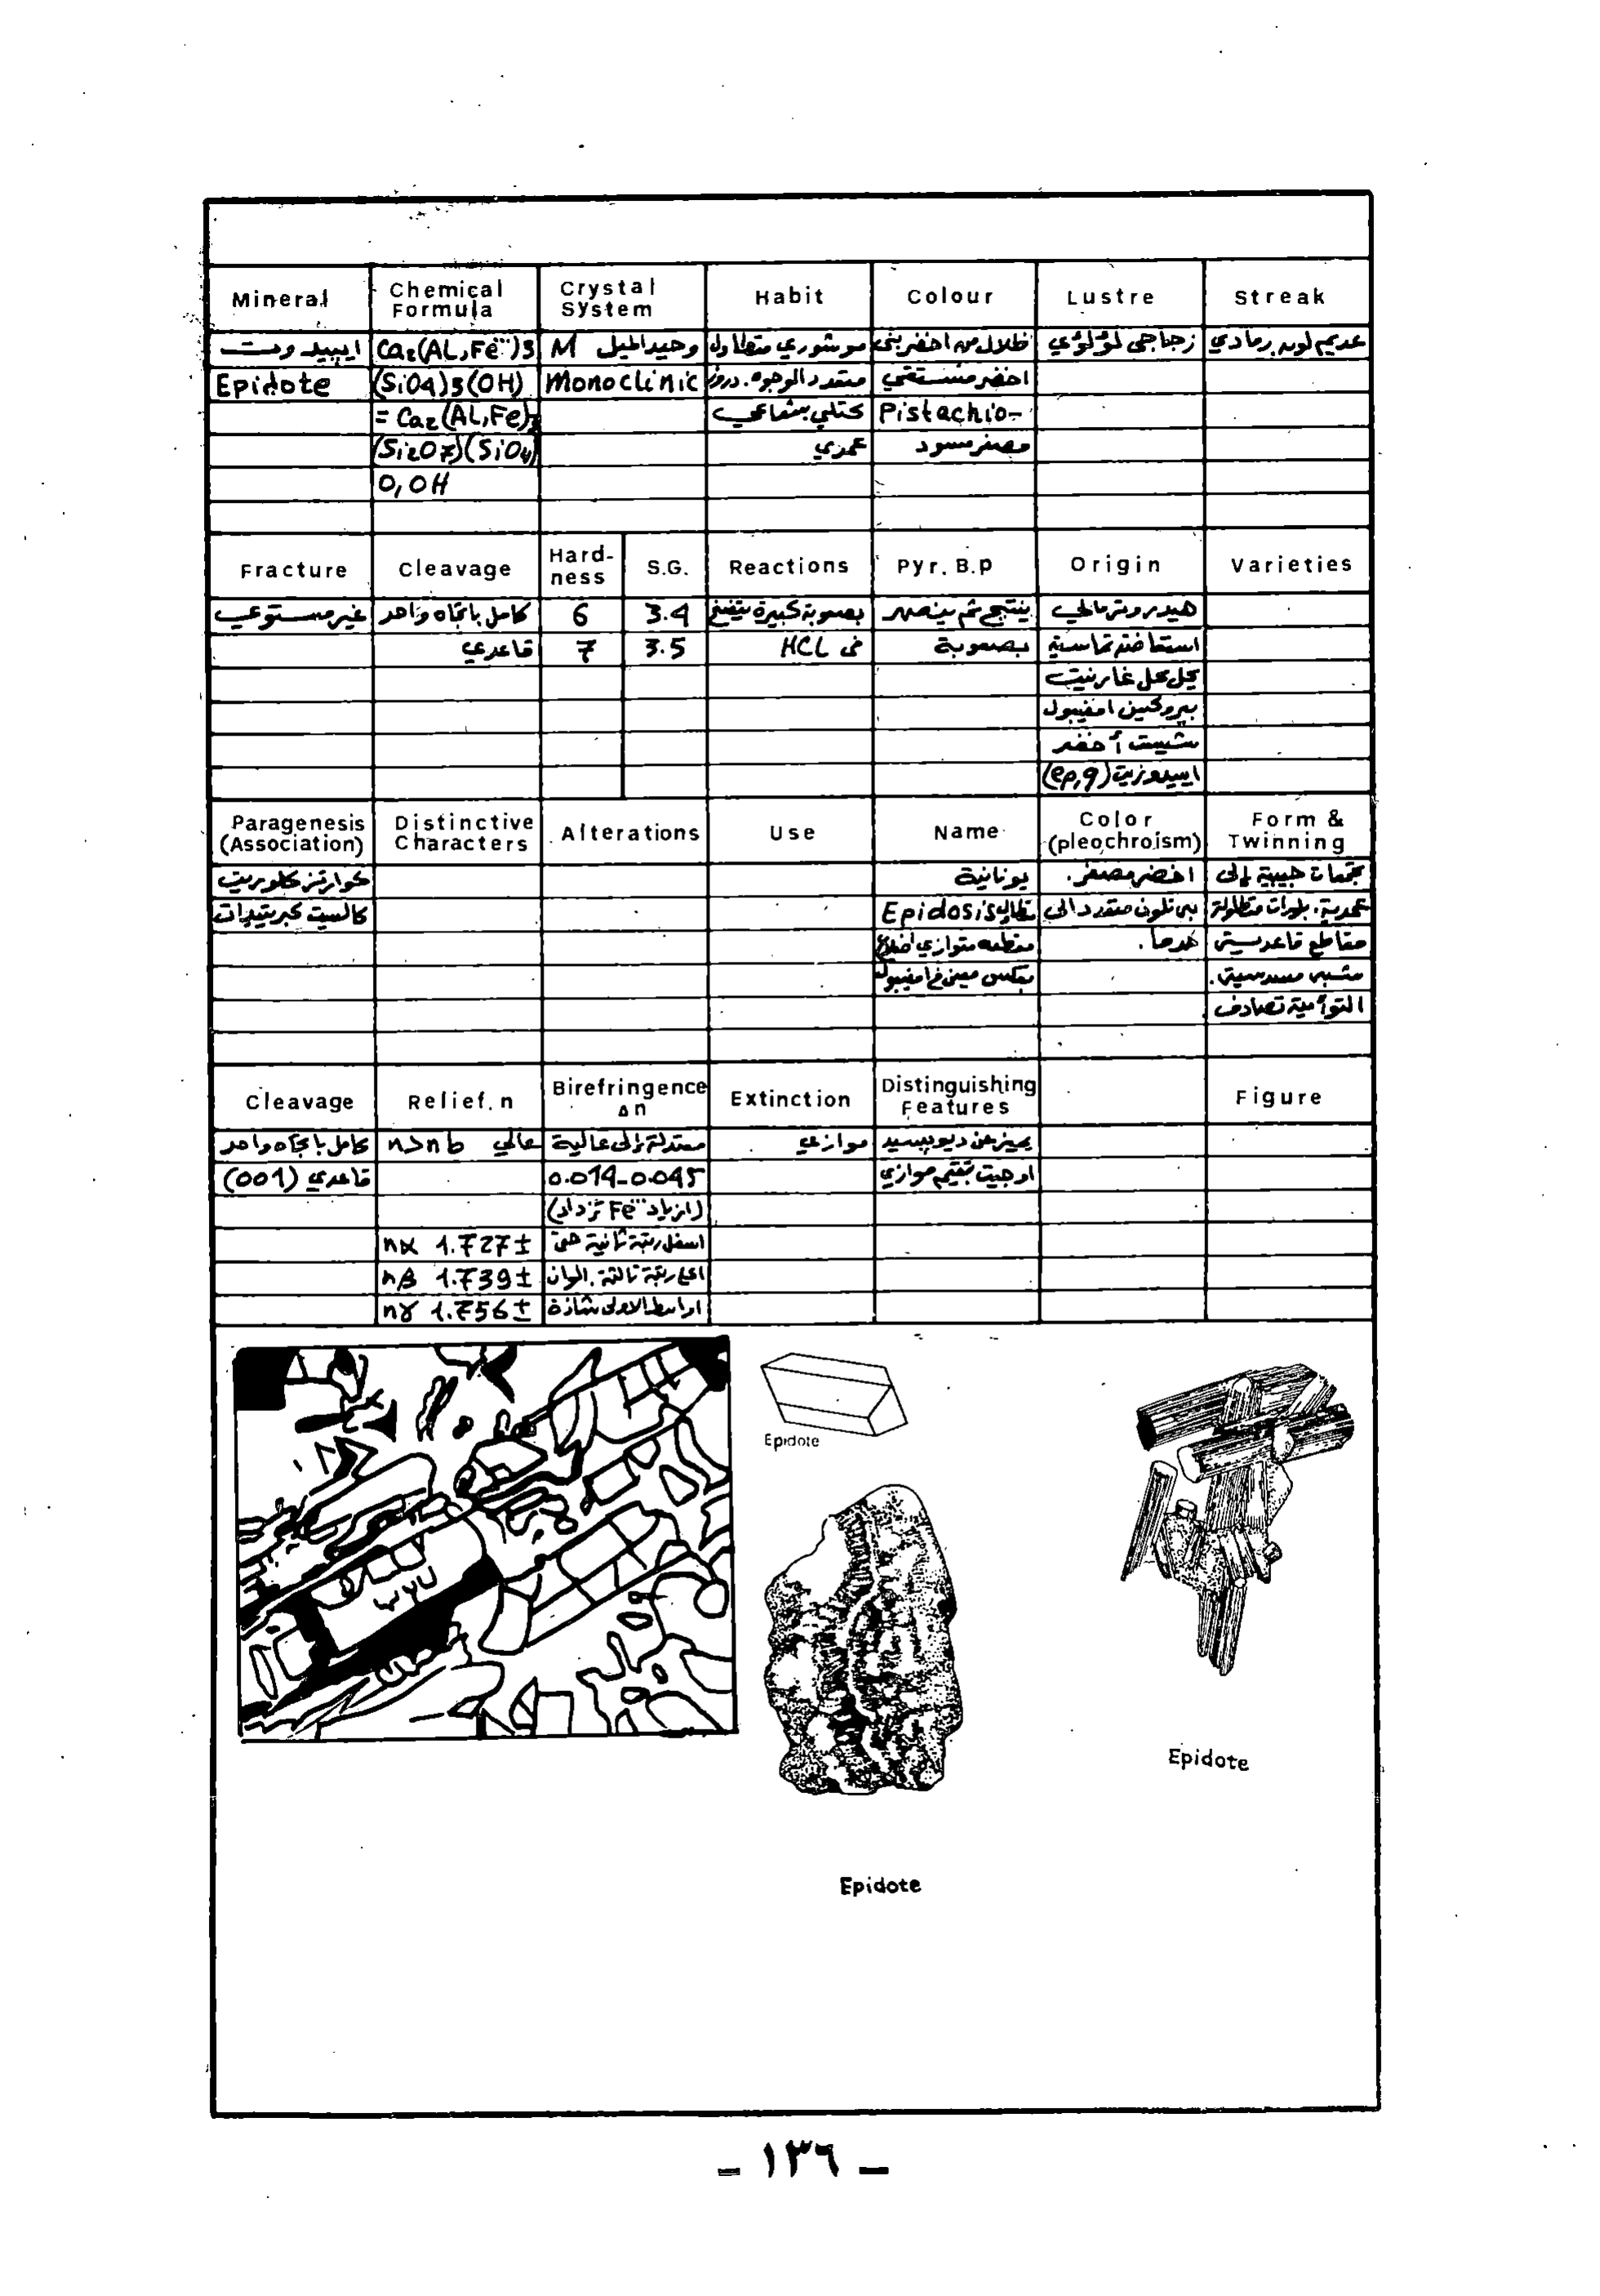 Mineral Chemical Formula Crystal System Habit Colour Lustre Streak
ايبيدوت Ca₂(AL,Fe‴)3 وحيد الميل M موشوري متطاول ظلال من اخضر بني زجاجي لؤلؤي عديم لون، رمادي
Epidote (SiO4)3(OH) Monoclinic متعدد الوجوه. دروز اخضر فستقي
= Ca₂(AL,Fe)3 كتلي شعاعي Pistachio-
(Si2O7)(SiO4) عمدي مصفر مسود
O,OH
Fracture Cleavage Hard-ness S.G. Reactions Pyr. B.p Origin Varieties
غير مستوي كامل باتجاه واحد 6 3.4 بصعوبة كبيرة ينتج ثم ينصهر هيدروترمالي
قاعدي 7 3.5 في HCL بصعوبة استحاضة تماسية
يحل محل غارنيت
بيروكسين امفيبول
شيست أخضر
(ep,q)
Paragenesis (Association) Distinctive Characters Alterations Use Name Color (pleochroism) Form & Twinning
كوارتز كلوريت يونانية اخضر مصفر. تجمعات حبيبية إلى
كالسيت كبريتيدات Epidosis تطاول بني تلون متعدد الى عمدية، بلورات متطاولة
مقطعه متوازي اضلاع مقاطع قاعدية
بعكس معين امفيبول شبه مسدسية.
التوأمية تصادف
Cleavage Relief. n Birefringence Δn Extinction Distinguishing Features Figure
كامل باتجاه واحد عالي n>nb معتدلة إلى عالية موازي يميز عن ديوبسيد
قاعدي (001) 0.014-0.045 اوجيت بتقيم موازي
(ازدياد Fe‴ تزداد)
nα 1.727± اسفل رتبة ثانية حتى
nβ 1.739± اعلى رتبة ثالثة. الوان
nγ 1.756± اواسط الاولى شاذة
Epidote
Epidote
Epidote
- ١٣٦ -